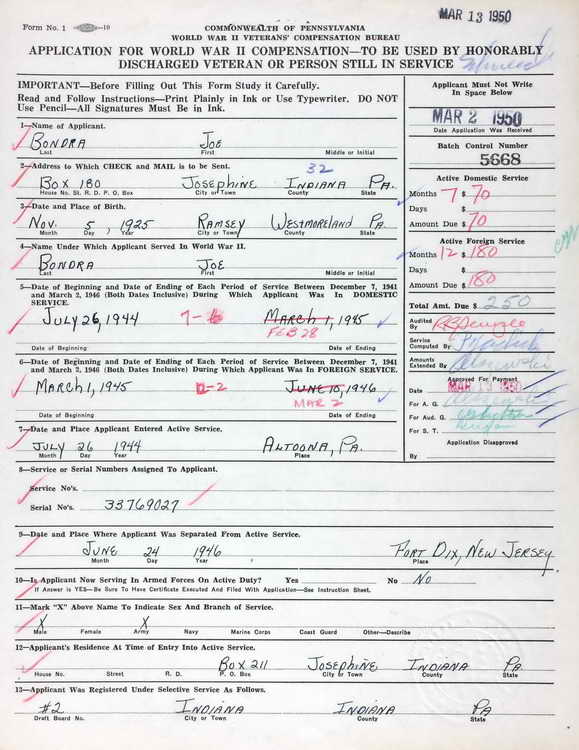 MAR 13 1950
Form No. 1
COMMONWEALTH OF PENNSYLVANIA
WORLD WAR II VETERANS' COMPENSATION BUREAU
APPLICATION FOR WORLD WAR II COMPENSATION—TO BE USED BY HONORABLY
DISCHARGED VETERAN OR PERSON STILL IN SERVICE
IMPORTANT—Before Filling Out This Form Study it Carefully.
Read and Follow Instructions—Print Plainly in Ink or Use Typewriter. DO NOT
Use Pencil—All Signatures Must Be in Ink.
1—Name of Applicant.
BONDRA JOE
Last First Middle or Initial
2—Address to Which CHECK and MAIL is to be Sent.
32
BOX 180 JOSEPHINE INDIANA PA.
House No. St. R. D. P. O. Box City or Town County State
3—Date and Place of Birth.
NOV. 5, 1925 RAMSEY WESTMORELAND PA
Month Day Year City or Town County State
4—Name Under Which Applicant Served In World War II.
BONDRA JOE
Last First Middle or Initial
5—Date of Beginning and Date of Ending of Each Period of Service Between December 7, 1941
and March 2, 1946 (Both Dates Inclusive) During Which Applicant Was In DOMESTIC
SERVICE.
JULY 26, 1944 7-6 MARCH 1, 1945
FEB 28
Date of Beginning Date of Ending
6—Date of Beginning and Date of Ending of Each Period of Service Between December 7, 1941
and March 2, 1946 (Both Dates Inclusive) During Which Applicant Was In FOREIGN SERVICE.
MARCH 1, 1945 12-2 JUNE 10, 1946
MAR 2
Date of Beginning Date of Ending
7—Date and Place Applicant Entered Active Service.
JULY 26 1944 ALTOONA, PA.
Month Day Year Place
8—Service or Serial Numbers Assigned To Applicant.
Service No's.
Serial No's. 33769027
9—Date and Place Where Applicant Was Separated From Active Service.
JUNE 24 1946 FORT DIX, NEW JERSEY
Month Day Year Place
10—Is Applicant Now Serving In Armed Forces On Active Duty? Yes No NO
If Answer is YES—Be Sure To Have Certificate Executed And Filed With Application—See Instruction Sheet.
11—Mark "X" Above Name To Indicate Sex And Branch of Service.
X X
Male Female Army Navy Marine Corps Coast Guard Other—Describe
12—Applicant's Residence At Time of Entry Into Active Service.
BOX 211 JOSEPHINE INDIANA PA
House No. Street R. D. P. O. Box City or Town County State
13—Applicant Was Registered Under Selective Service As Follows.
#2 INDIANA INDIANA PA
Draft Board No. City or Town County State
Applicant Must Not Write
In Space Below
MAR 2 1950
Date Application Was Received
Batch Control Number
5668
Active Domestic Service
Months 7 $ 70
Days $
Amount Due $ 70
Active Foreign Service
Months 12 $ 180
Days $
Amount Due $ 180
Total Amt. Due $ 250
Audited
By
Service
Computed By
Amounts
Extended By
Approved For Payment
Date MAR 13 1950
For A. G.
For Aud. G.
For S. T.
Application Disapproved
By